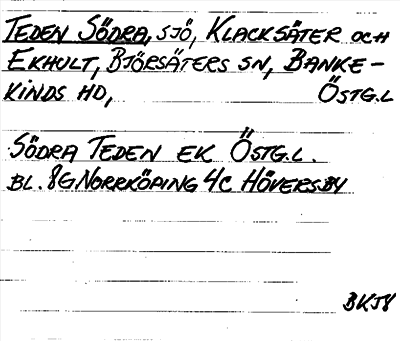 TEDEN SÖDRA, SJÖ, KLACKSÄTER OCH
EKHULT, BJÖRSÄTERS SN, BANKE-
KINDS HD, ÖSTG.L
SÖDRA TEDEN EK ÖSTG.L.
BL. 8G NORRKÖPING 4C HÖVERSBY
BKJ8